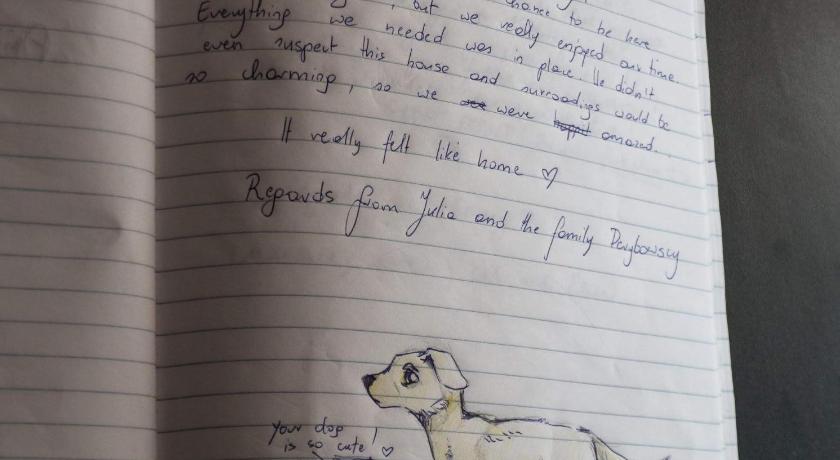 chance to be here
, but we really enjoyed our time.
Everything we needed was in place. We didn't
even suspect this house and surroadigs would be
so charming, so we were amazed.
It really felt like home ♡
Regards from Julia and the family
your dog
is so cute! ♡